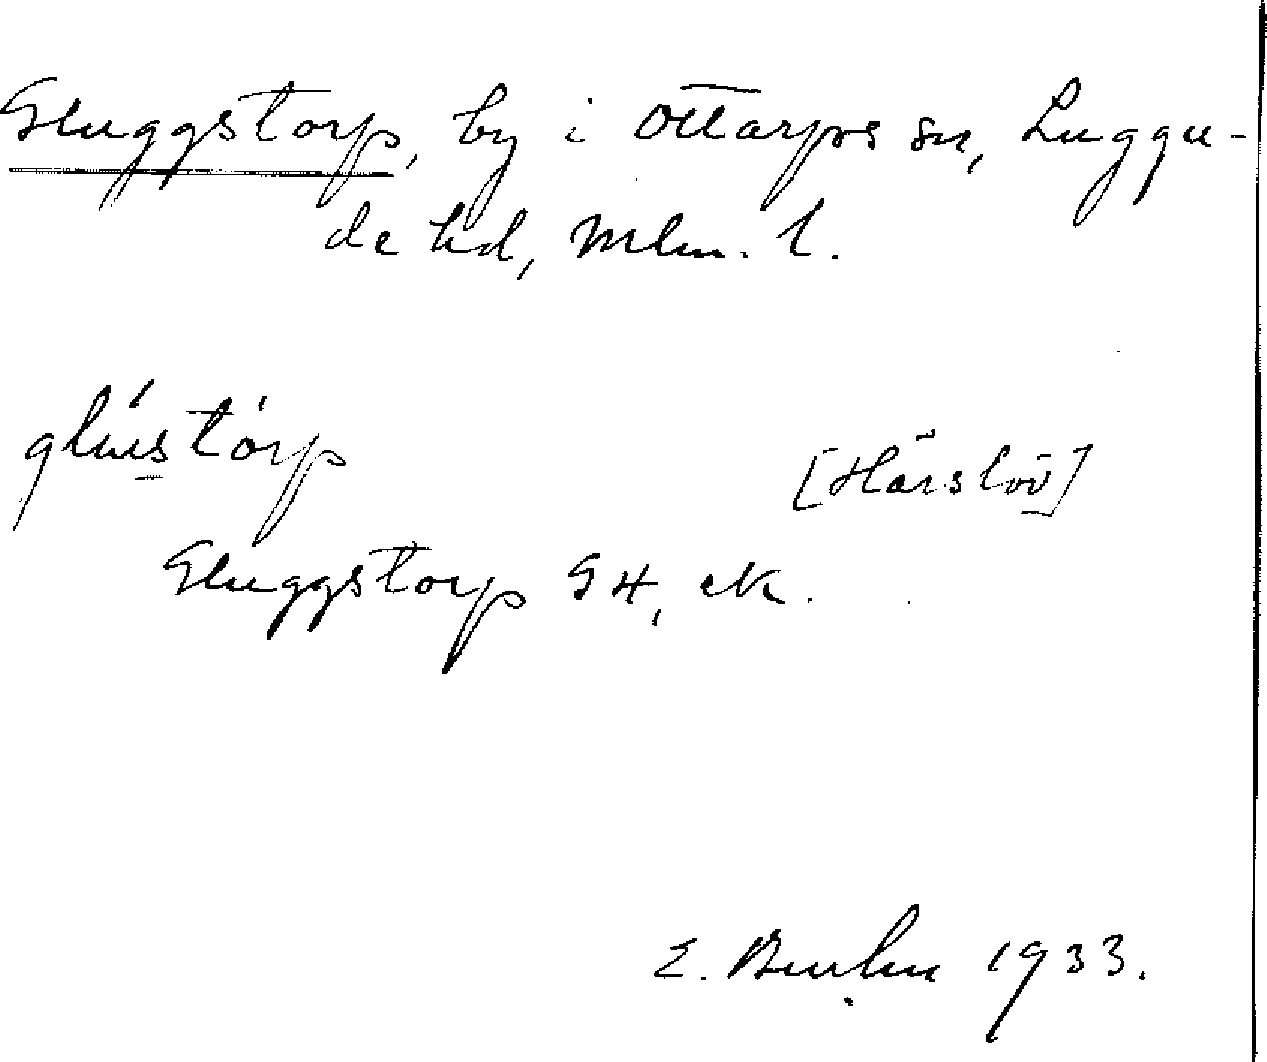 Gluggstorp, by i Ottarps sn, Luggu-
de hd, Mlm. l.
glústórp
[Härslöv]
Gluggstorp GH, eK.
E. 1933.